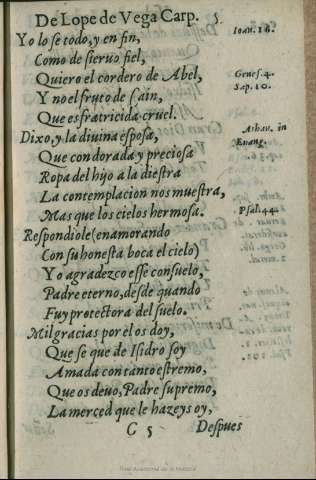 De Lope de Vega Carp. 5
Yo lo se todo, y en fin,
Ioan. 16.
Como de sieruo fiel,
Quiero el cordero de Abel,
Genes. 4.
Y no el fruto de Cain,
Sap. 10.
Que os fratricida cruel.
Dixo, y la diuina esposa,
Athan. in
Euang.
Que con dorada y preciosa
Ropa del hijo a la diestra
La contemplacion nos muestra,
Mas que los cielos hermosa.
Psal. 44.
Respondiole (enamorando
Con su honesta boca el cielo)
Yo agradezco esse consuelo,
Padre eterno, desde quando
Fuy protectora del suelo.
Mil gracias por el os doy,
Que se que de Isidro soy
Amada con tanto estremo,
Que os deuo, Padre supremo,
La merced que le hazeys oy,
C 5 Despues
Real Academia de la Historia